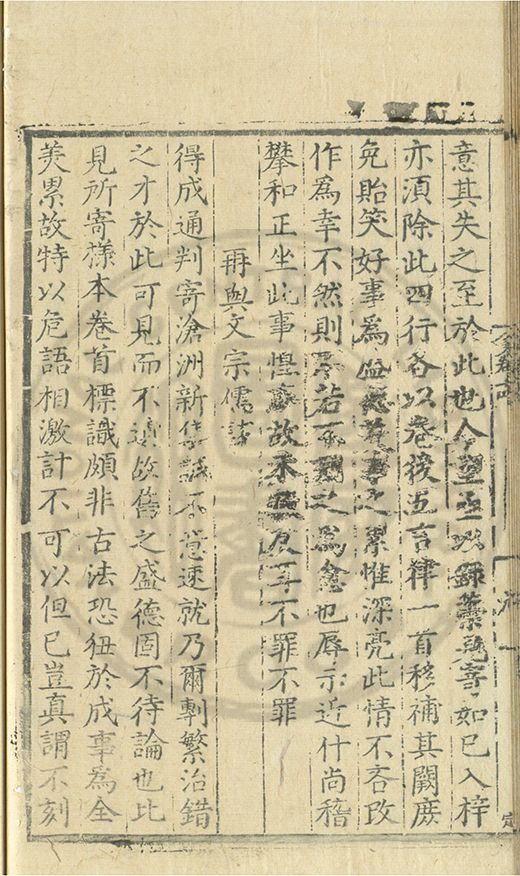 意其失之至於此也今望亟以錄藁寄如已入梓
亦須除此四行各以卷後五言律一首移補其闕庶
免貽笑好事爲盛之累惟深亮此情不吝改
作爲幸不然則不若不刻之爲愈也辱示近什尚稽
攀和正坐此事惶故未耳不罪不罪
再與文宗儒
得成通判寄滄洲新集不意速就乃爾剸繁治錯
之才於此可見而不遺故舊之盛德固不待論也比
見所寄樣本卷首標識頗非古法恐狃於成事爲全
美累故特以危語相激計不可以但已豈真謂不刻